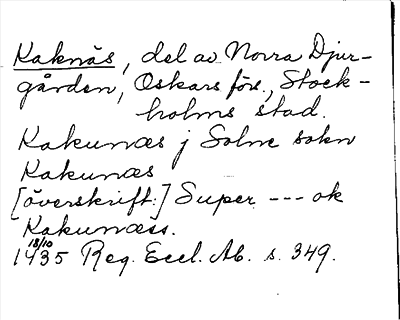 Kaknäs, del av Norra Djur-
gården, Oskars förs., Stock-
holms stad.
Kakunæs j Solne sokn
Kakunæs
[överskrift:] Super --- ok
Kakunæss.
18/10
1435 Reg. Eccl. Ab. s. 349.